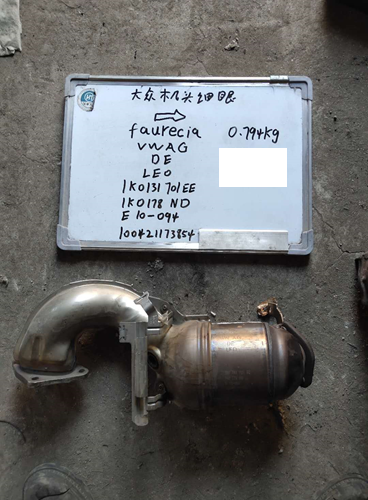 大众机头细眼
faurecia 0.794kg
VWAG
DE
LEO
1K0131701EE
1K0178 ND
E10-094
100421173854